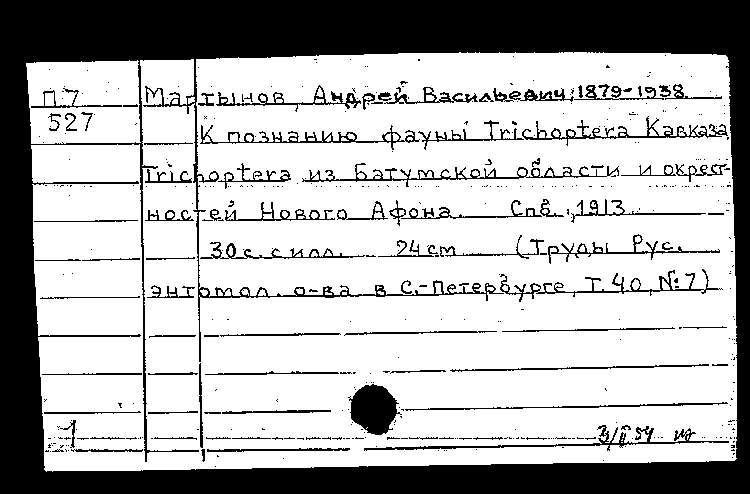 П.7 Мартынов, Андрей Васильевич, 1879-1938
527 К познанию фауны Trichoptera Кавказа
Trichoptera из Батумской области и окрест-
ностей Нового Афона. Спб., 1913.
30 с. с илл. 24 см (Труды Рус.
энтомол. о-ва в С.-Петербурге, Т. 40, №7)
1
3/II 54